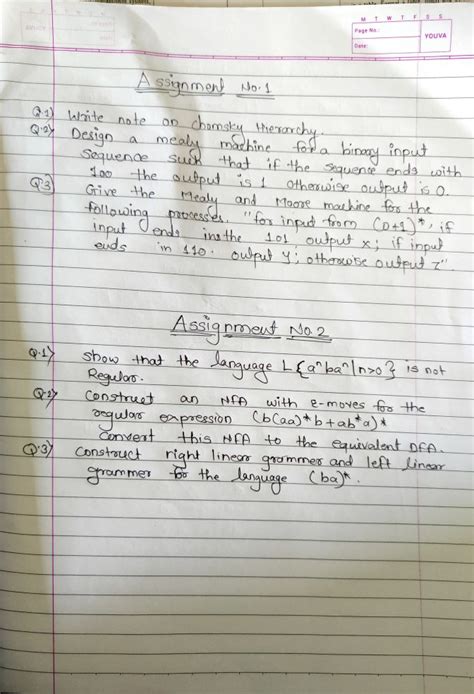 M T W T F S S
Page No.:
YOUVA
Date:
Assignment No.1
Q.1) Write note on chomsky Hierarchy.
Q.2) Design a mealy machine for a binary input
sequence such that if the sequence ends with
100 the output is 1 otherwise output is 0.
Q3) Give the Mealy and Moore machine for the
following processes. "for input from (0+1)*, if
input ends in the 101 output x; if input
ends in 110. output Y; otherwise output z".
Assignment No.2
Q.1) show that the language L{aⁿbaⁿ|n>0} is not
Regular.
Q.2) Construct an NFA with ε-moves for the
regular expression (b(aa)*b+ab*a)*
Convert this NFA to the equivalent DFA.
Q.3) construct right linear grammer and left linear
grammer for the language (ba)*.